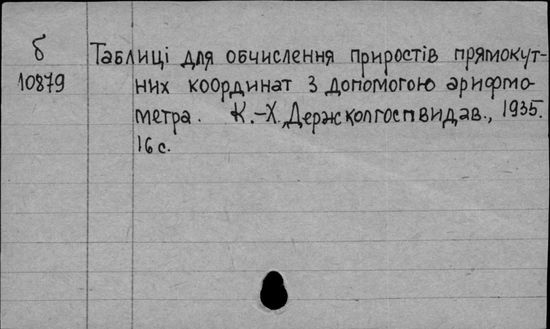 б
10879
Таблиці для обчислення приростів прямокут-
них координат з допомогою арифмо-
метра. К.-Х. Держколгоспвидав., 1935.
16 с.